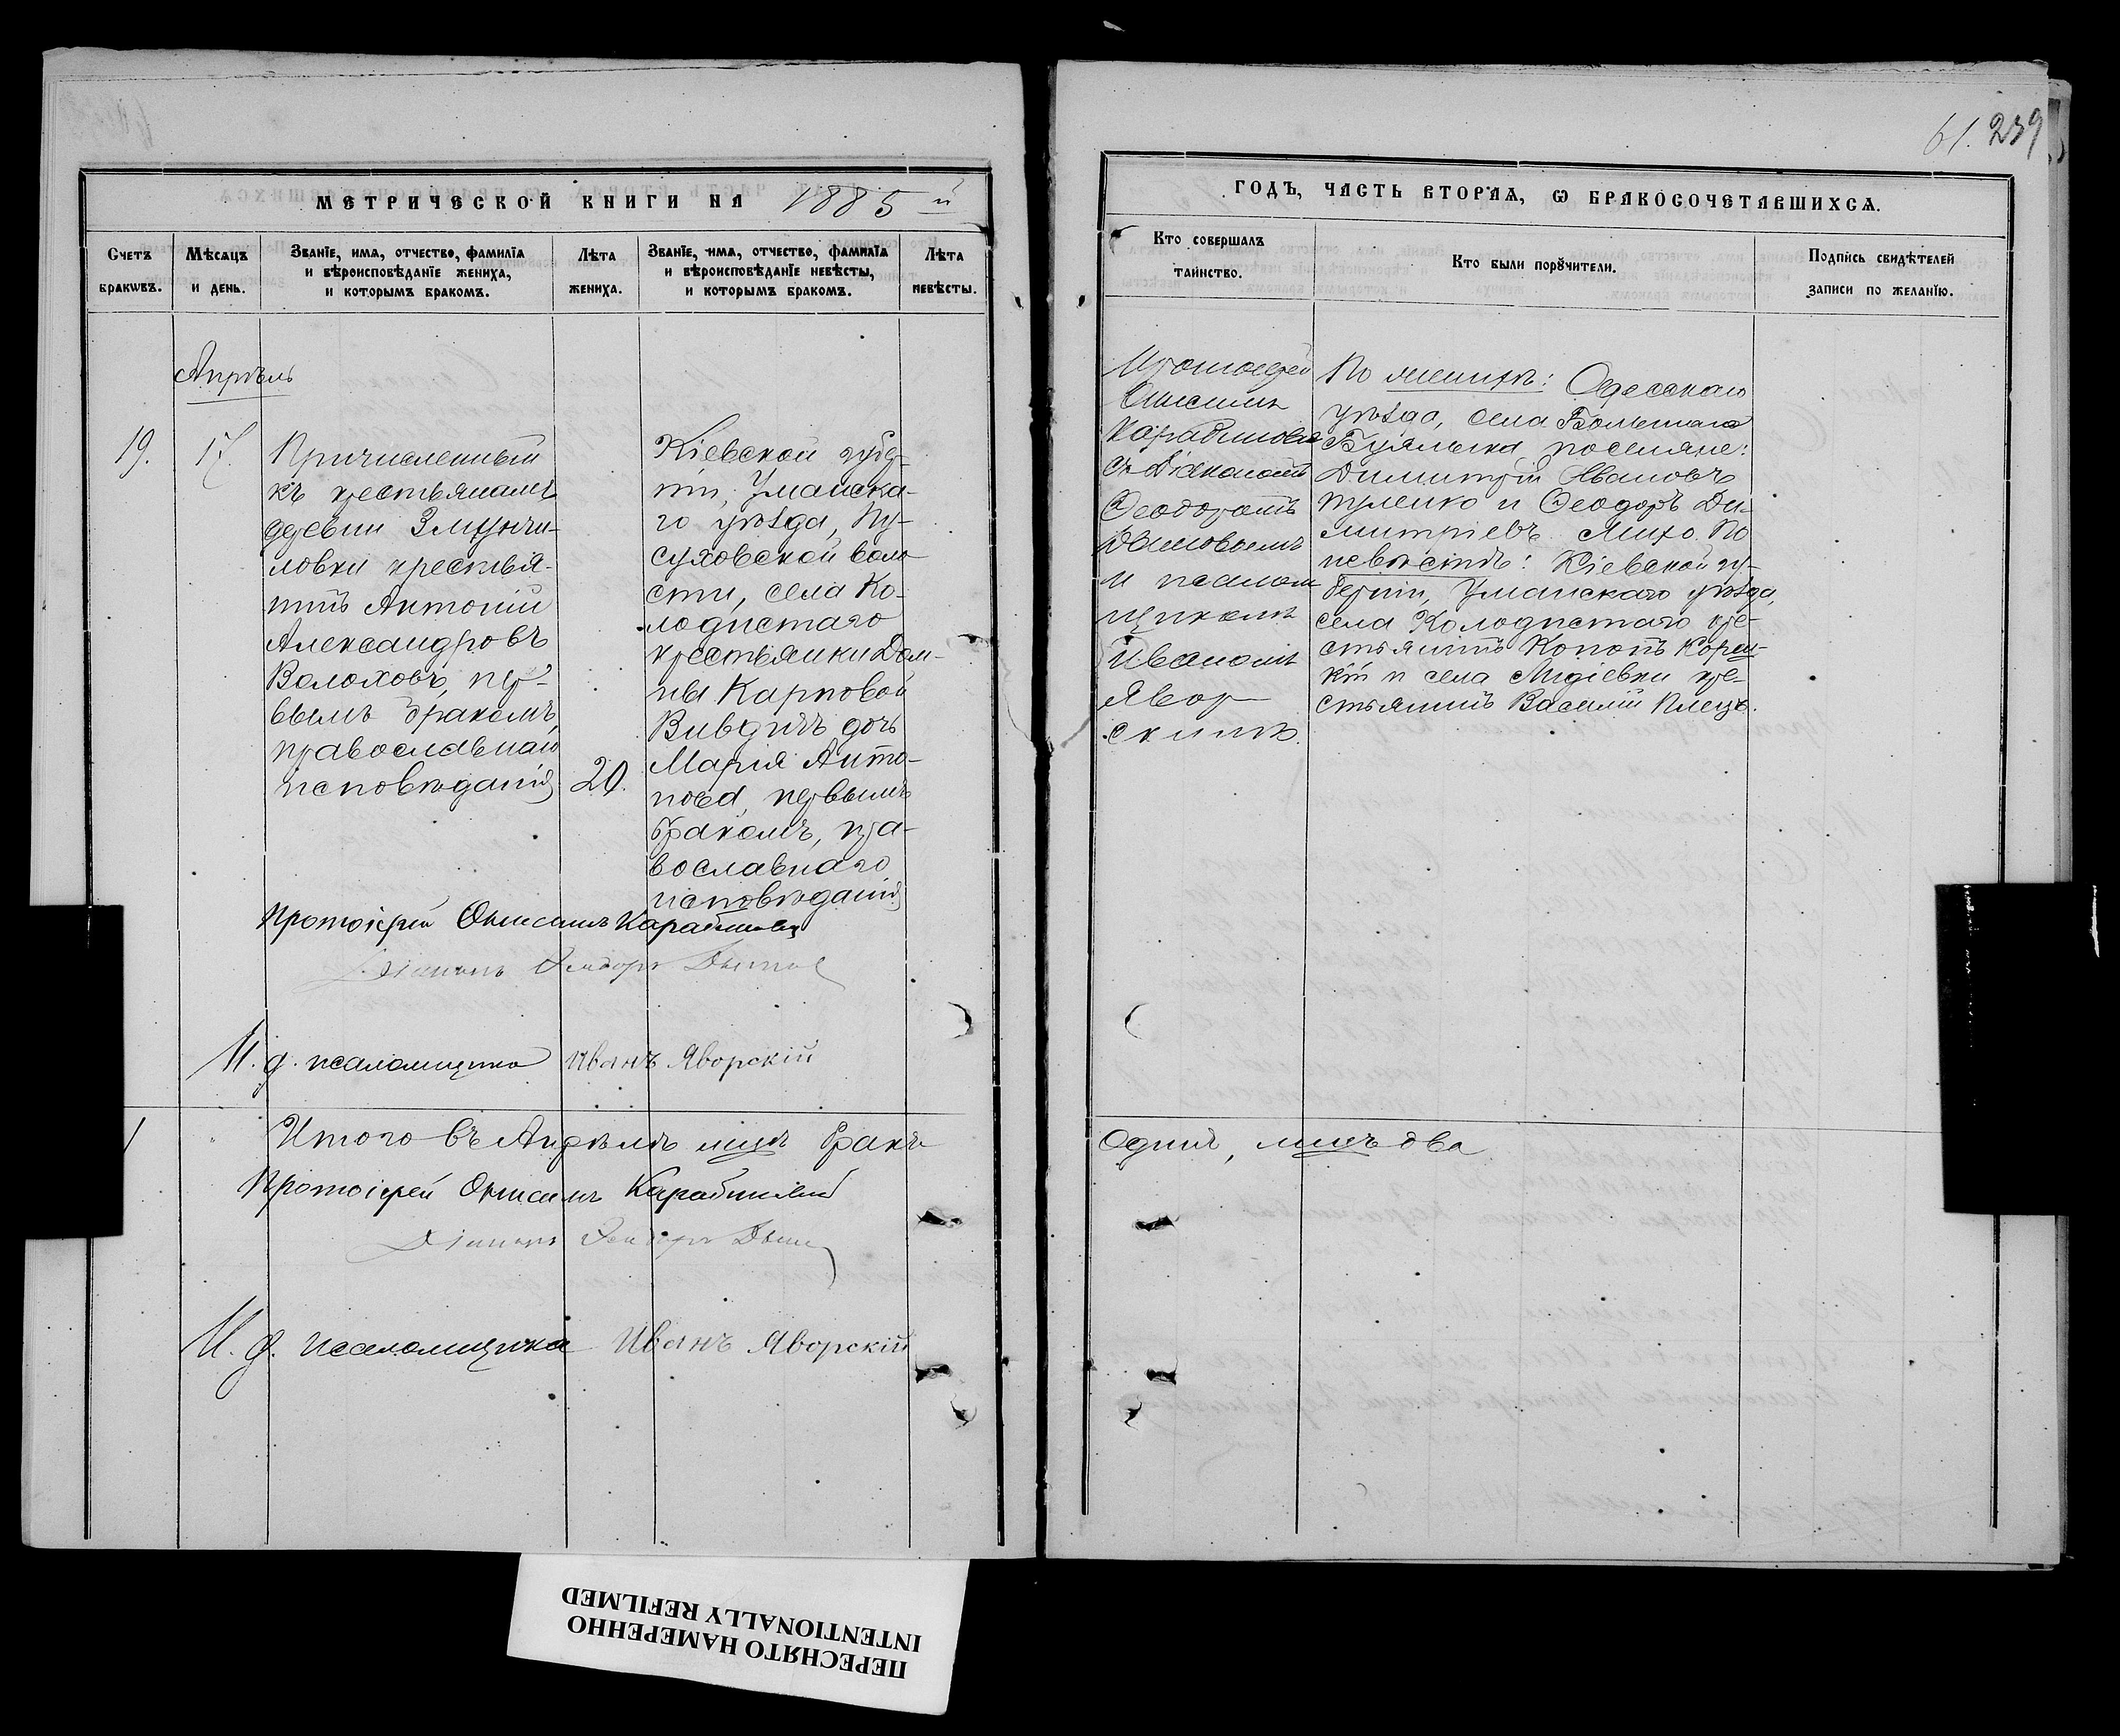 61. 239
МЕТРИЧЕСКОЙ КНИГИ НА 1885 й
ГОДЪ, ЧАСТЬ ВТОРАѦ, Ѡ БРАКОСОЧЕТАВШИХСѦ.
Счетъ
бракѡвъ.
Мѣсѧцъ
и день.
Званїе, имѧ, отчество, фамилїа
и вѣроисповѣданїе жениха,
и которымъ бракомъ.
Лѣта
жениха.
Званїе, имѧ, отчество, фамилїа
и вѣроисповѣданїе невѣсты,
и которымъ бракомъ.
Лѣта
невѣсты.
Кто совершалъ
таинство.
Кто были порꙋчители.
Подпись свидѣтелей
записи по желанїю.
Апрѣль
19.
17.
Причисленный
къ крестьянамъ
деревни
ловки крестья-
нинъ Антоній
Александровъ
Волоховъ, пер-
вымъ бракомъ,
православнаго
исповѣданія
20.
Кіевской губер-
ніи, Уманска-
го уѣзда, Пу-
суховской воло
сти, села Ко-
лодистаго
крестьянки Дом-
ны Карповой
дочь
Марія Анто-
нова, первымъ
бракомъ, пра-
вославнаго
исповѣданія
Протоіерей
Онисимъ
Карабиновъ
съ Діакономъ
Ѳеодоромъ
и псалом
щикомъ
Иваномъ
Явор
скимъ.
По женихѣ: Одесскаго
уѣзда, села Большаго
Буялыка поселяне:
Димитрій Ивановъ
и Ѳеодоръ Ди-
митріевъ По
невѣстѣ: Кіевской гу-
берніи, Уманскаго уѣзда,
села Колодистаго кре-
стьянинъ Кононъ
и села кре-
стьянинъ Василій
Протоіерей Онисимъ Карабиновъ
Діаконъ Ѳеодоръ
И. д. псаломщика Иванъ Яворскій
1
Итого въ Апрѣлѣ мцѣ бракъ
Одинъ, лицъ два
Протоіерей Онисимъ Карабиновъ
Діаконъ Ѳеодоръ
И. д. псаломщика Иванъ Яворскій
ПЕРЕСНЯТО НАМЕРЕННО
INTENTIONALLY REFILMED